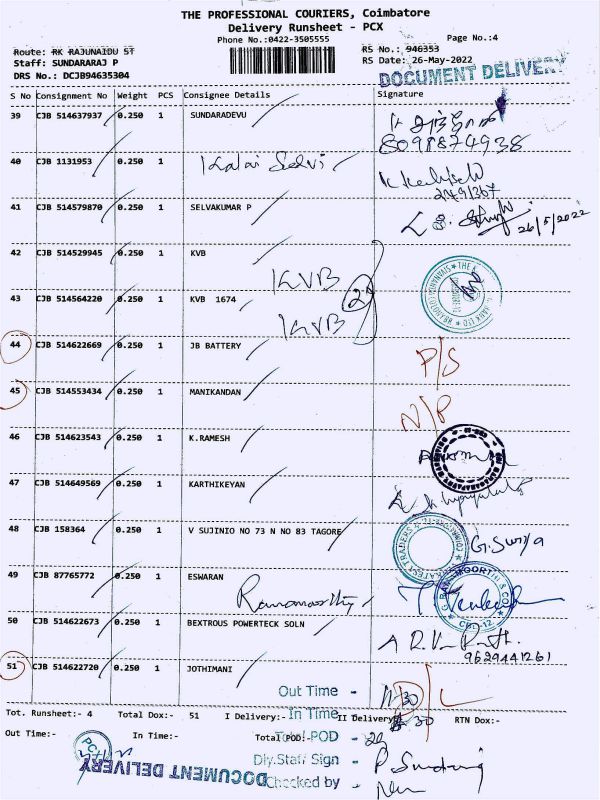 THE PROFESSIONAL COURIERS, Coimbatore
Delivery Runsheet - PCX
Phone No.:0422-3505555
Page No.:4
Route: RK RAJUNAIDU ST
RS No.: 946353
Staff: SUNDARARAJ P
RS Date: 26-May-2022
DRS No.: DCJB94635304
DOCUMENT DELIVERY
S No Consignment No Weight PCS Consignee Details Signature
39 CJB 514637937 0.250 1 SUNDARADEVU
8098874938
40 CJB 1131953 0.250 1 Kalai Selvi
2491367
41 CJB 514579870 0.250 1 SELVAKUMAR P
26/5/2022
42 CJB 514529945 0.250 1 KVB
KVB
43 CJB 514564220 0.250 1 KVB 1674
KVB
44 CJB 514622669 0.250 1 JB BATTERY P/S
45 CJB 514553434 0.250 1 MANIKANDAN N/P
46 CJB 514623543 0.250 1 K.RAMESH
47 CJB 514649569 0.250 1 KARTHIKEYAN
48 CJB 158364 0.250 1 V SUJINIO NO 73 N NO 83 TAGORE G. Surya
49 CJB 87765772 0.250 1 ESWARAN
Ramamoorthy
50 CJB 514622673 0.250 1 BEXTROUS POWERTECK SOLN
9629441261
51 CJB 514622720 0.250 1 JOTHIMANI
Out Time - 11 30
Tot. Runsheet:- 4 Total Dox:- 51 I Delivery:- In Time II Delivery 30 RTN Dox:-
Out Time :- In Time:- Total POD:- Total POD - 20
Dly.Staff Sign -
DOCUMENT DELIVERY
Checked by -